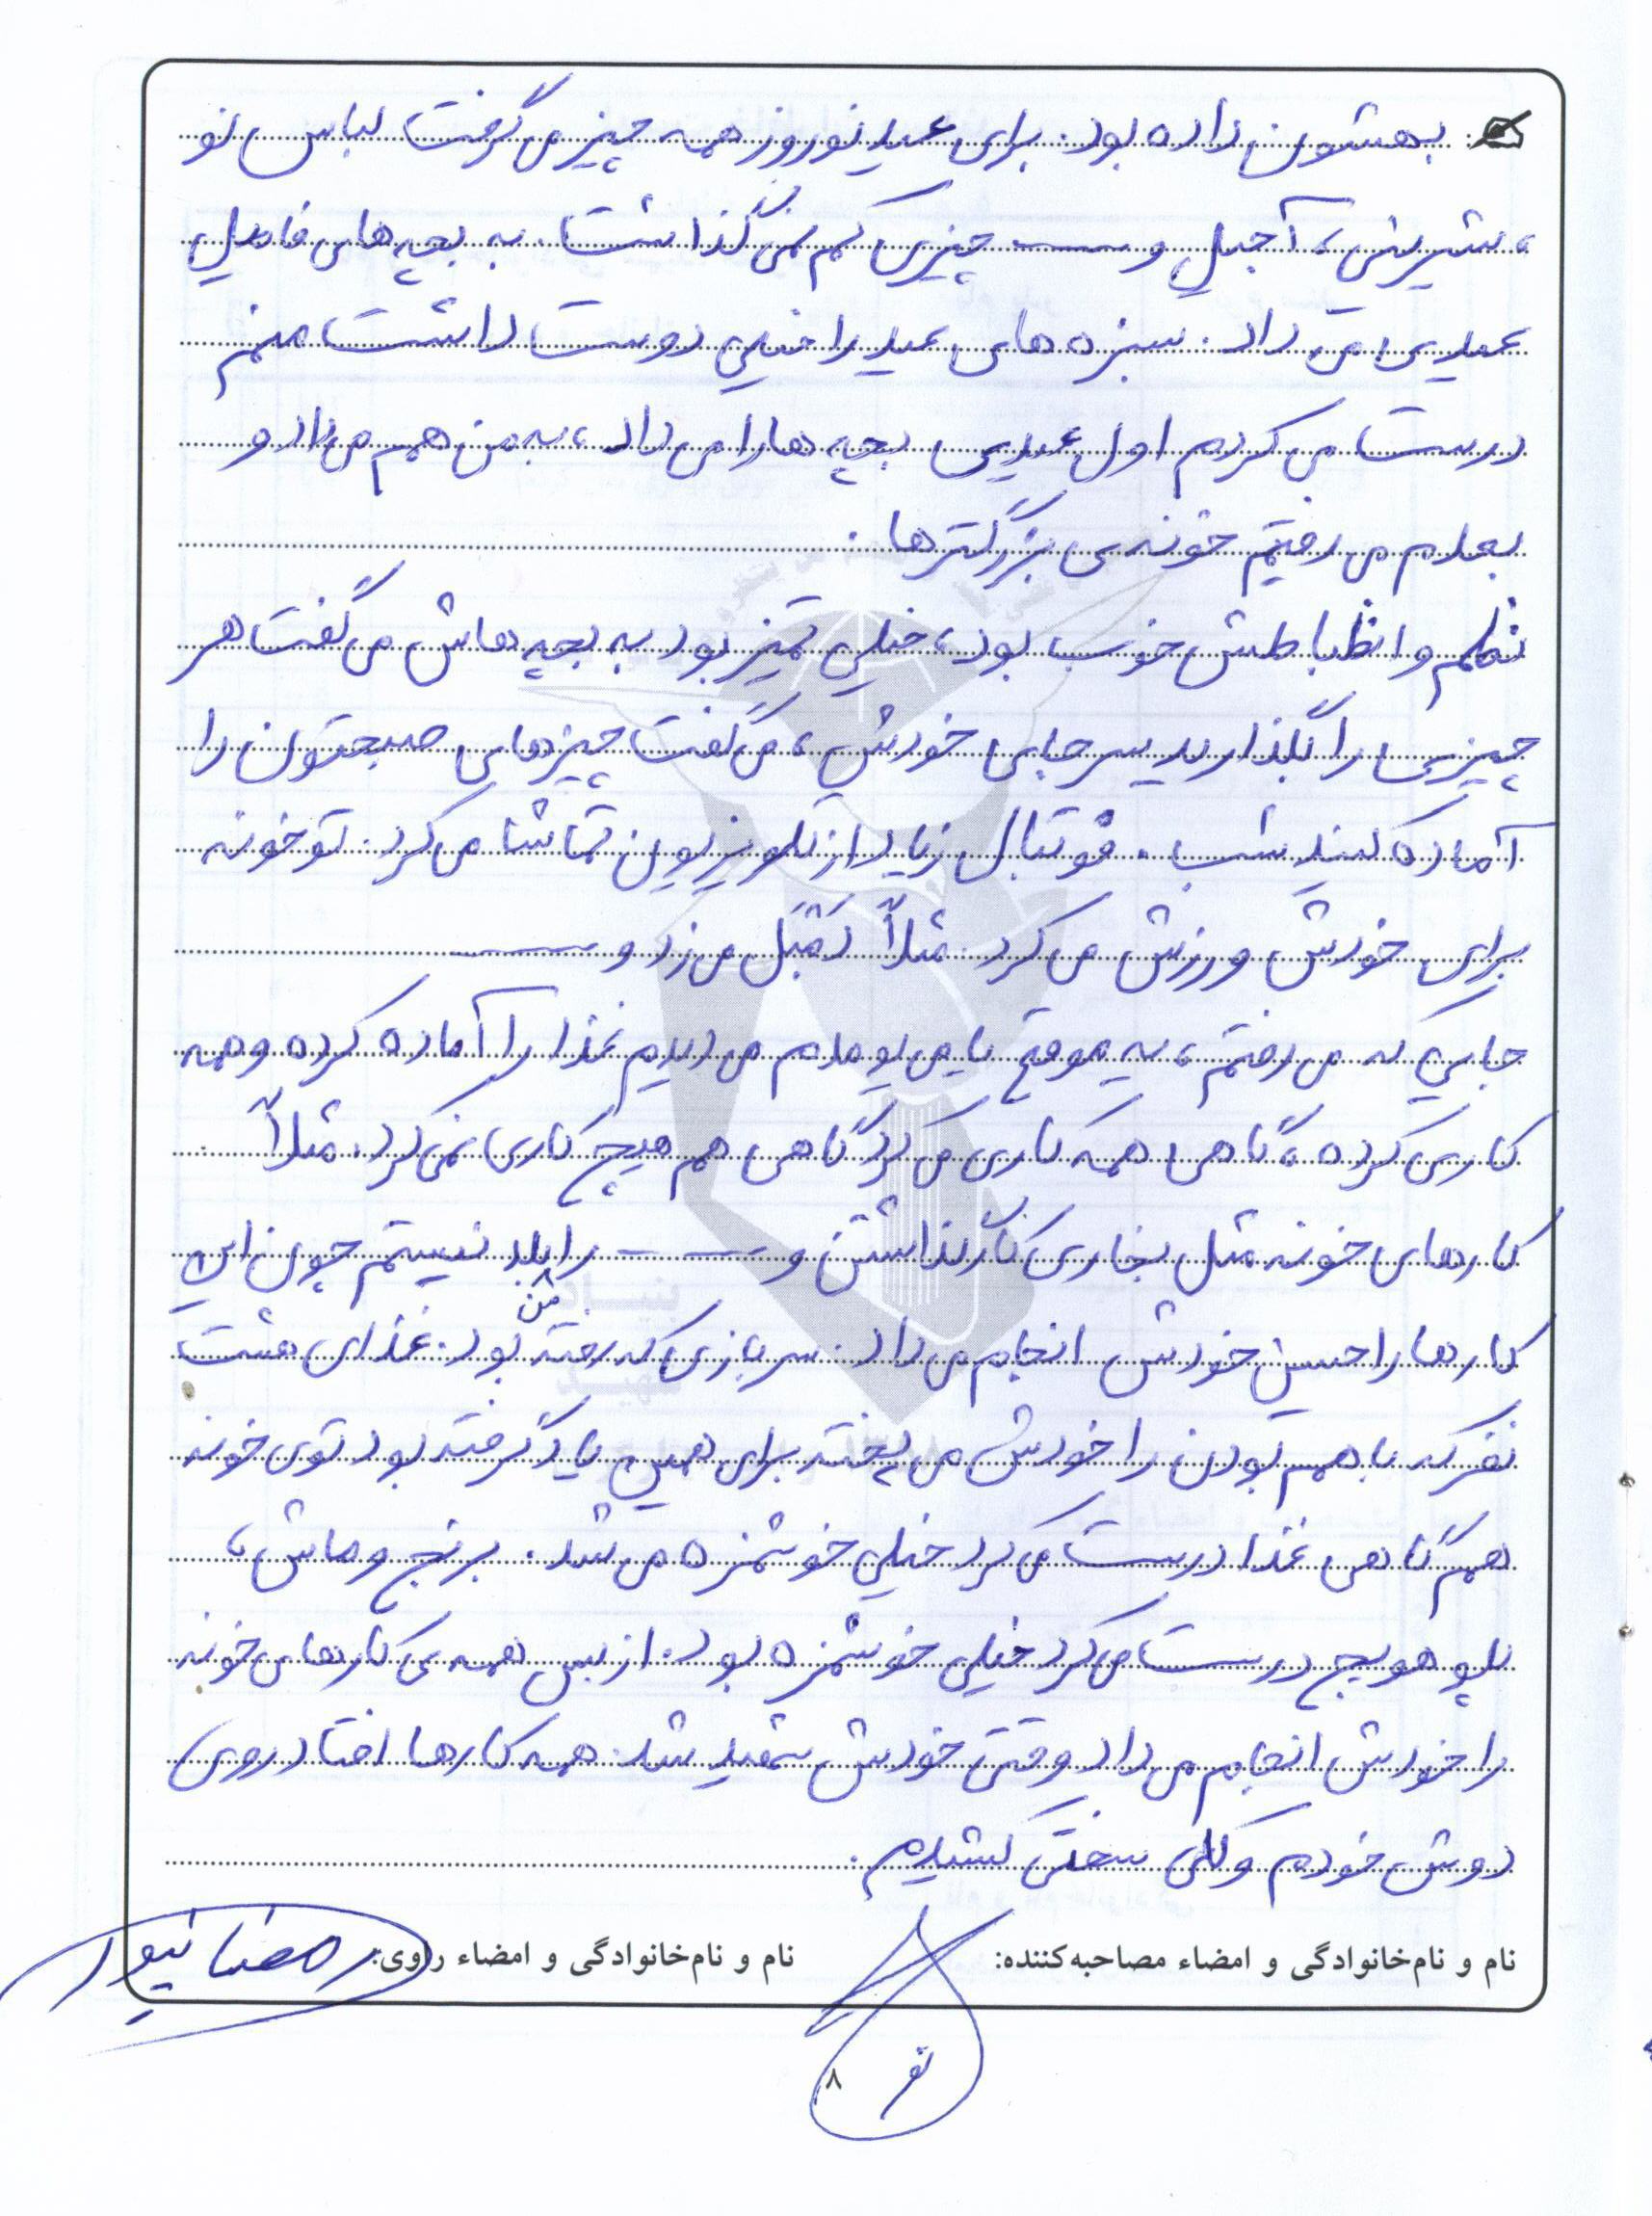 بهشون داده بود. برای عید نوروز همه چیز می‌گرفت لباس نو
، شیرینی، آجیل و ـــ چیزی کم نمی‌گذاشت. به بچه‌های فامیل
عیدی می‌داد. سبزه‌های عید را خیلی دوست داشت منم
درست می‌کردم اول عیدی بچه‌ها را می‌داد، به من هم می‌داد و
بعدم می‌رفتیم خونه‌ی بزرگترها.
نظم و انظباطش خوب بود، خیلی تمیز بود به بچه‌هاش می‌گفت هر
چیزی را بگذارید سر جای خودش، می‌گفت چیزهای صبحتون را
آماده کنید شب. فوتبال زیاد از تلویزیون تماشا می‌کرد. تو خونه
برای خودش ورزش می‌کرد. مثلاً دَمْبَل می‌زد و ـــ
جایی که می‌رفتم، یه موقع یا می‌یومدم می‌دیدم غذا را آماده کرده و همه
کاری کرده، گاهی همه کاری می‌کرد گاهی هم هیچ کاری نمی‌کرد. مثلاً
کارهای خونه مثل بخاری کار گذاشتن و ـــ را بلد نیستم چون این
کارها را حسین خودش انجام می‌داد. سربازی که رفته بود. غذای هشت
من
نفر که با هم بودن را خودش می‌پخته برای همین یاد گرفته بود توی خونه
هم گاهی غذا درست می‌کرد خیلی خوشمزه می‌شد. برنج و ماش،
پلو هویج درست می‌کرد خیلی خوشمزه بود. از بس همه‌ی کارهای خونه
را خودش انجام می‌داد وقتی خودش شهید شد. همه کارها افتاد روی
دوش خودم و کلی سختی کشیدم.
نام و نام‌خانوادگی و امضاء مصاحبه‌کننده: نام و نام‌خانوادگی و امضاء راوی: رمضانپور
۸